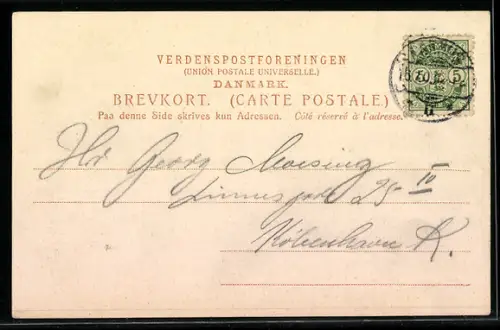 VERDENSPOSTFORENINGEN
(UNION POSTALE UNIVERSELLE.)
DANMARK.
BREVKORT. (CARTE POSTALE.)
Paa denne Side skrives kun Adressen. Côté réservé à l'adresse.
5 5
Hr Georg
25 IV
København K.